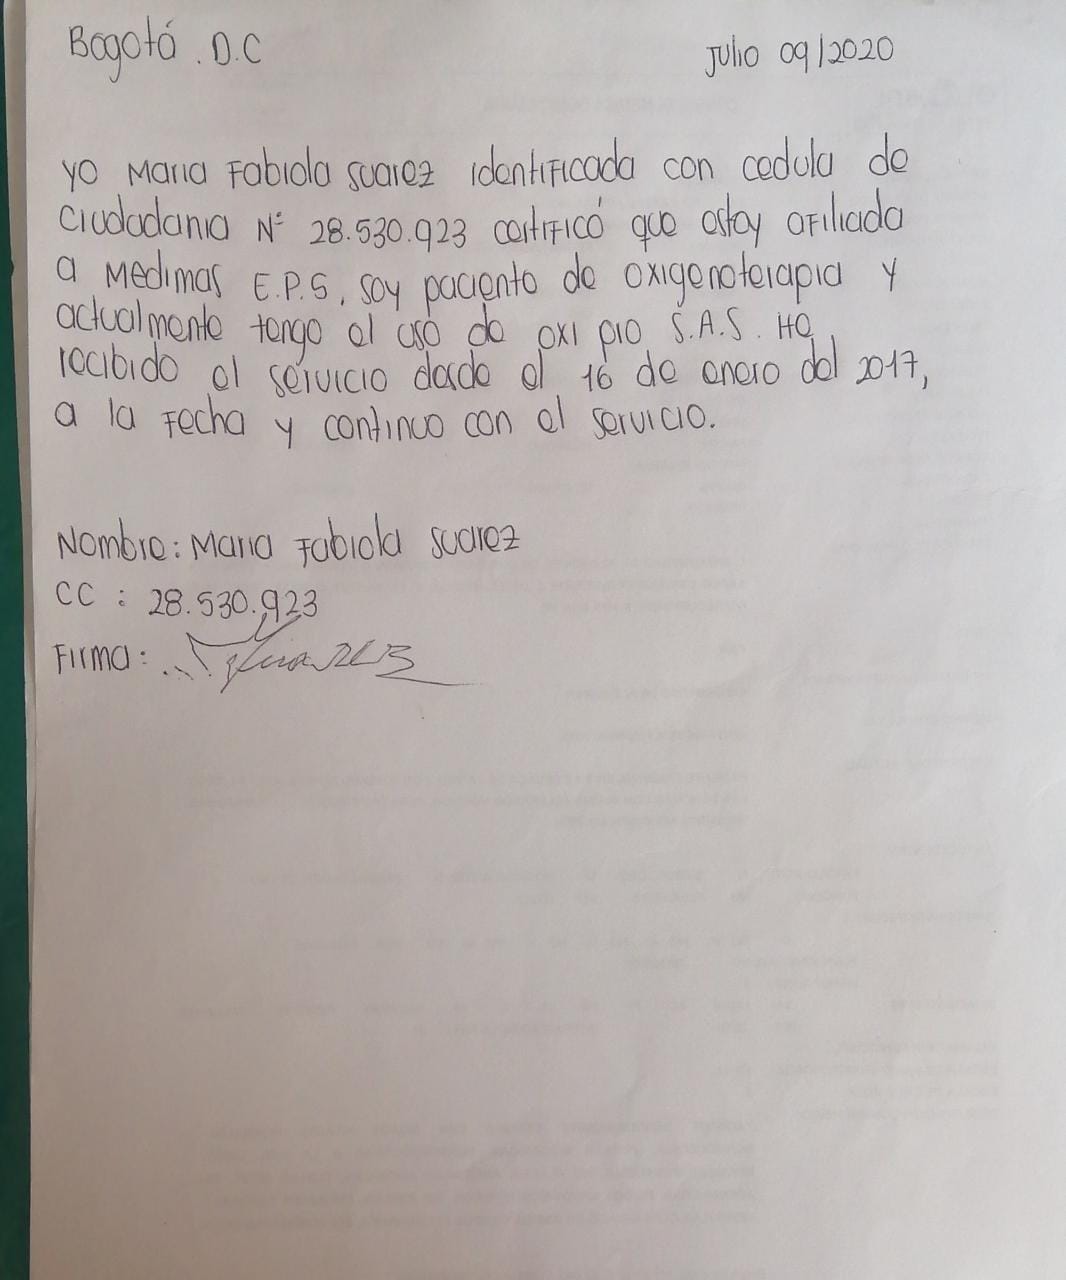 Bogotá . D.C
Julio 09/2020
yo Maria Fabiola suarez identificada con cedula de
ciudadania N° 28.530.923 certificó que estoy afiliada
a Medimas E.P.S, soy paciente de oxigenoterapia y
actualmente tengo el uso de oxi pro S.A.S. He
recibido el servicio desde el 16 de enero del 2017,
a la fecha y continuo con el servicio.
Nombre: Maria Fabiola suarez
CC : 28.530.923
Firma: